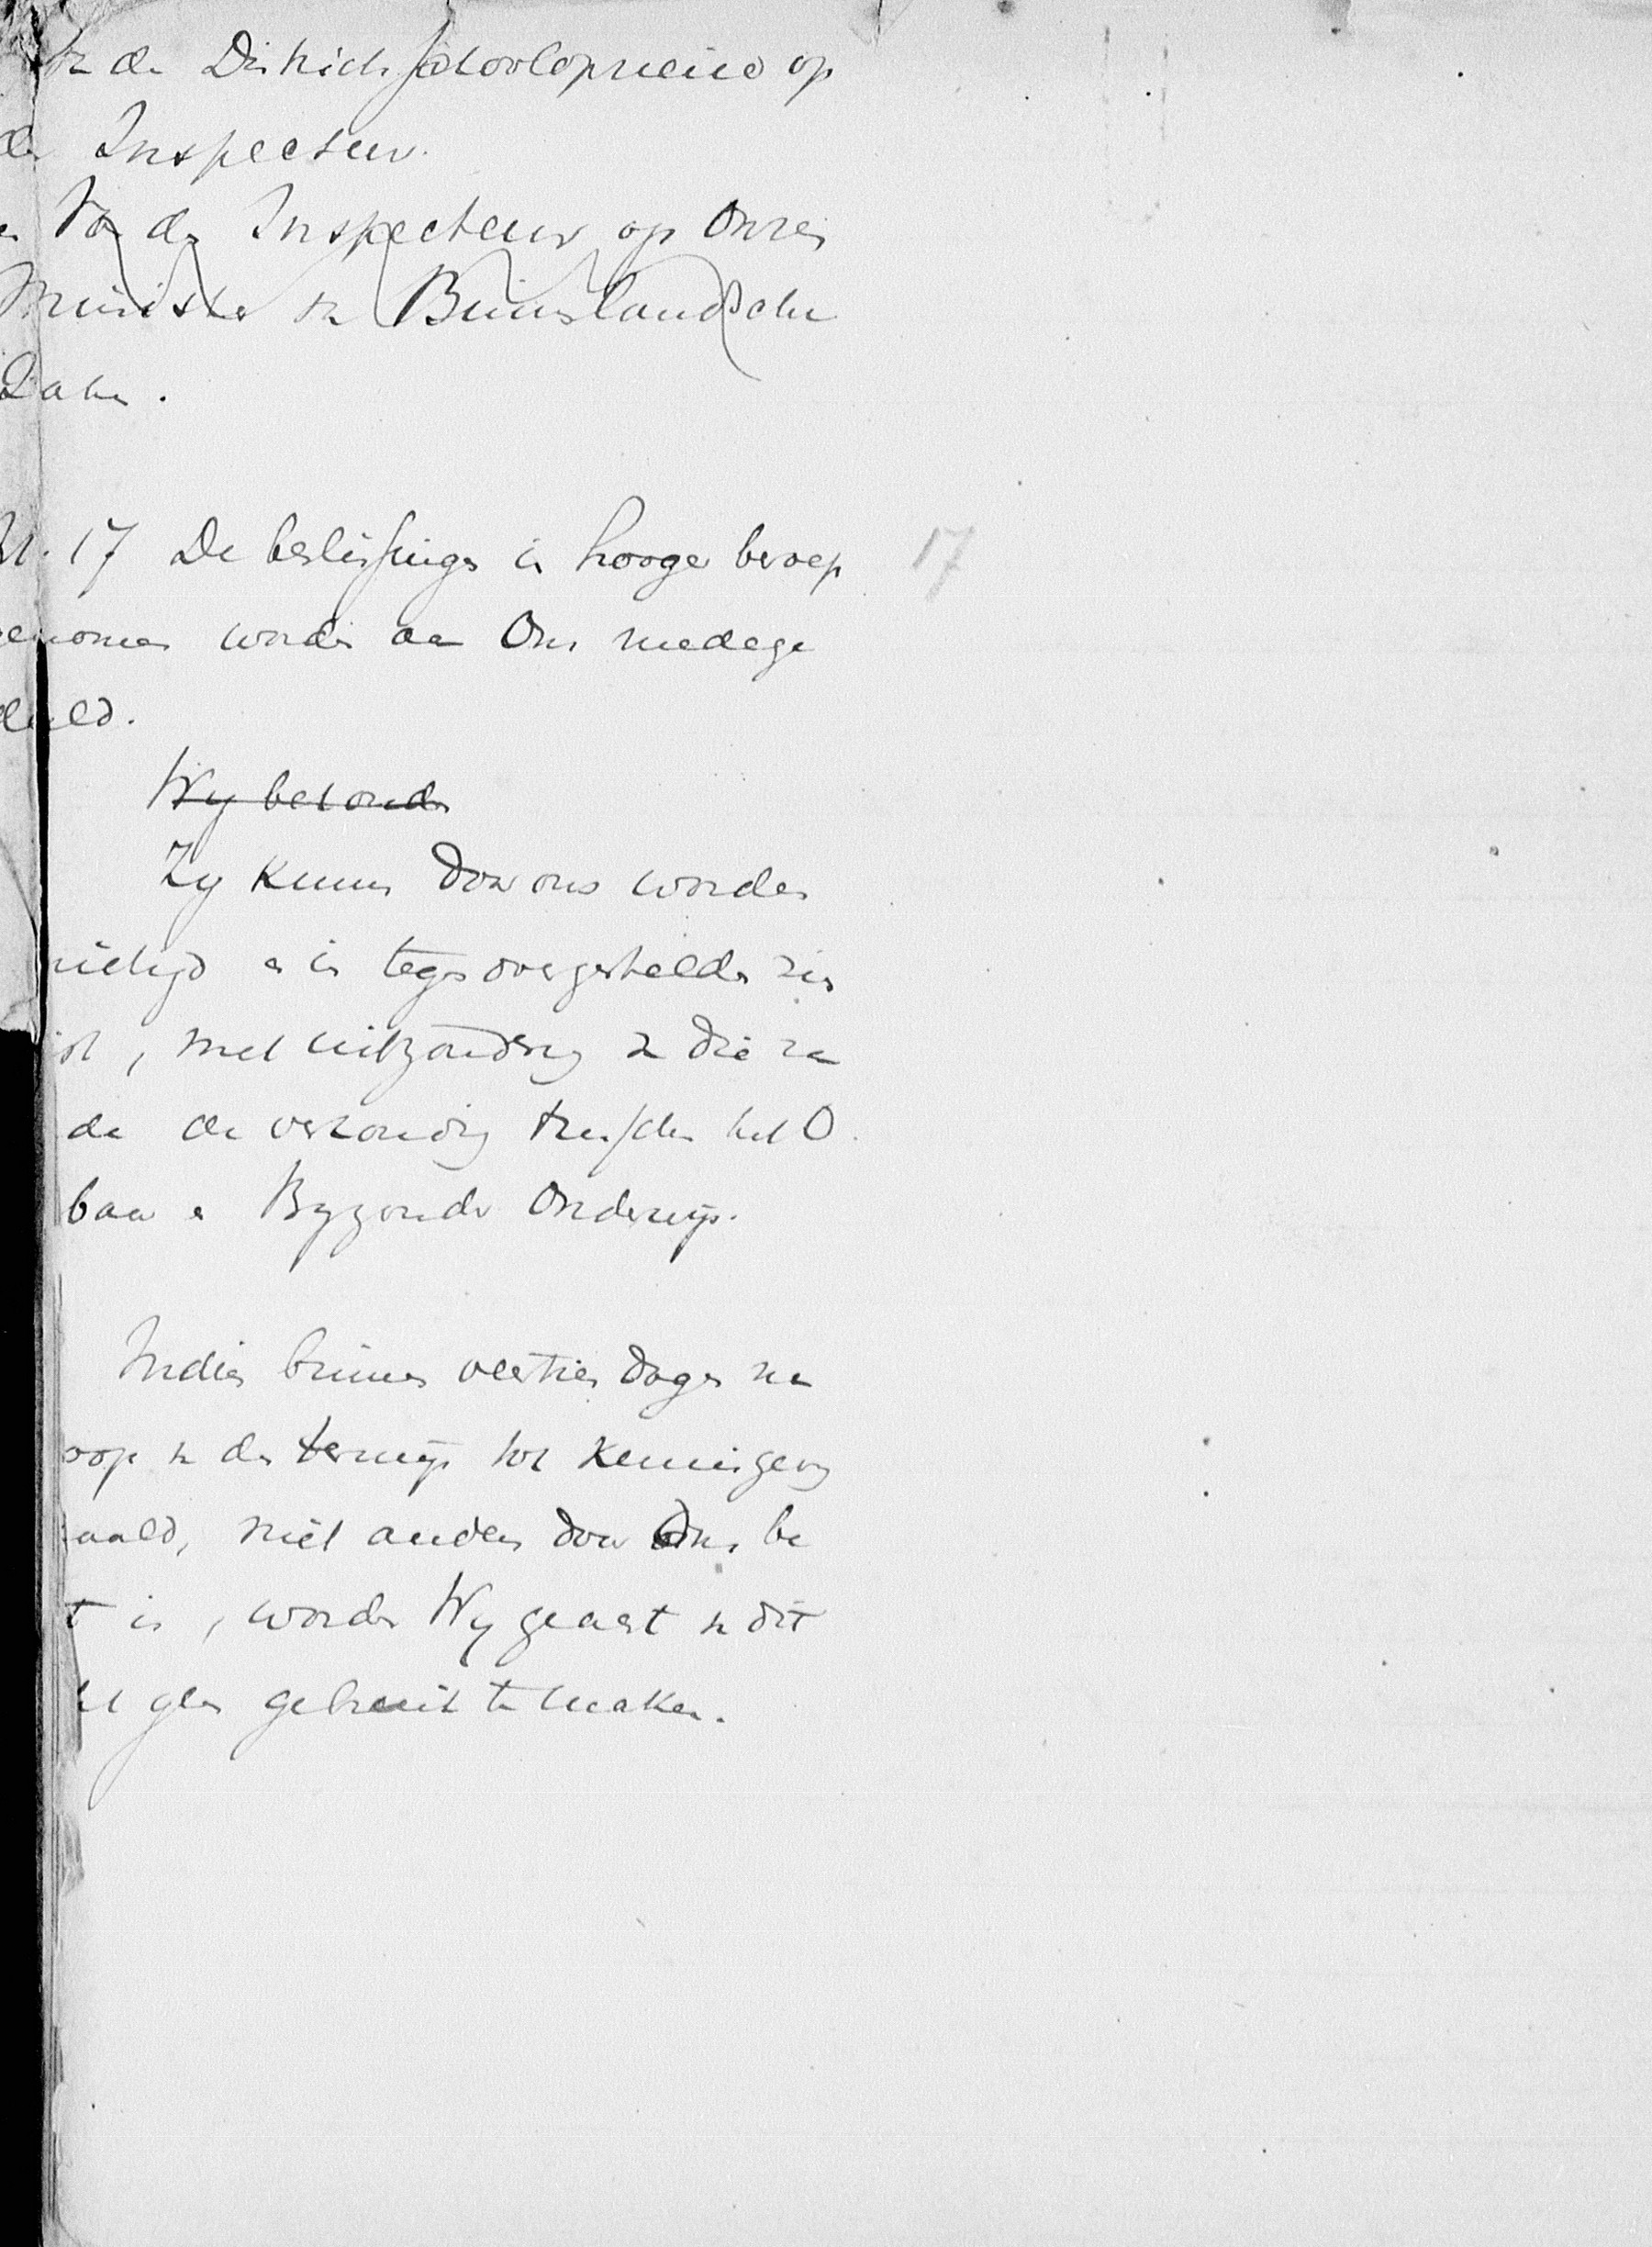 van den Districtsschoolopziener op
den Inspecteur.
en Van den Inspecteur op Onzen
Minister van Binnenlandsche
Zaken.
Art. 17 De beslissingen in hooger beroep 17
genomen worden aan Ons medege
deeld.
Wy behoude
Zy kunnen door ons worden
vernietigd en in tegenovergestelden zin
, met uitzondering van die ra
de de verhouding tusschen het O.
baar en Byzonder Onderwijs.
Indien binnen veertien dagen na
loop van den termijn tot kennisgeving
paald, niet anders door Ons be
t is, worden Wy geacht van dit
geen gebruik te maken.